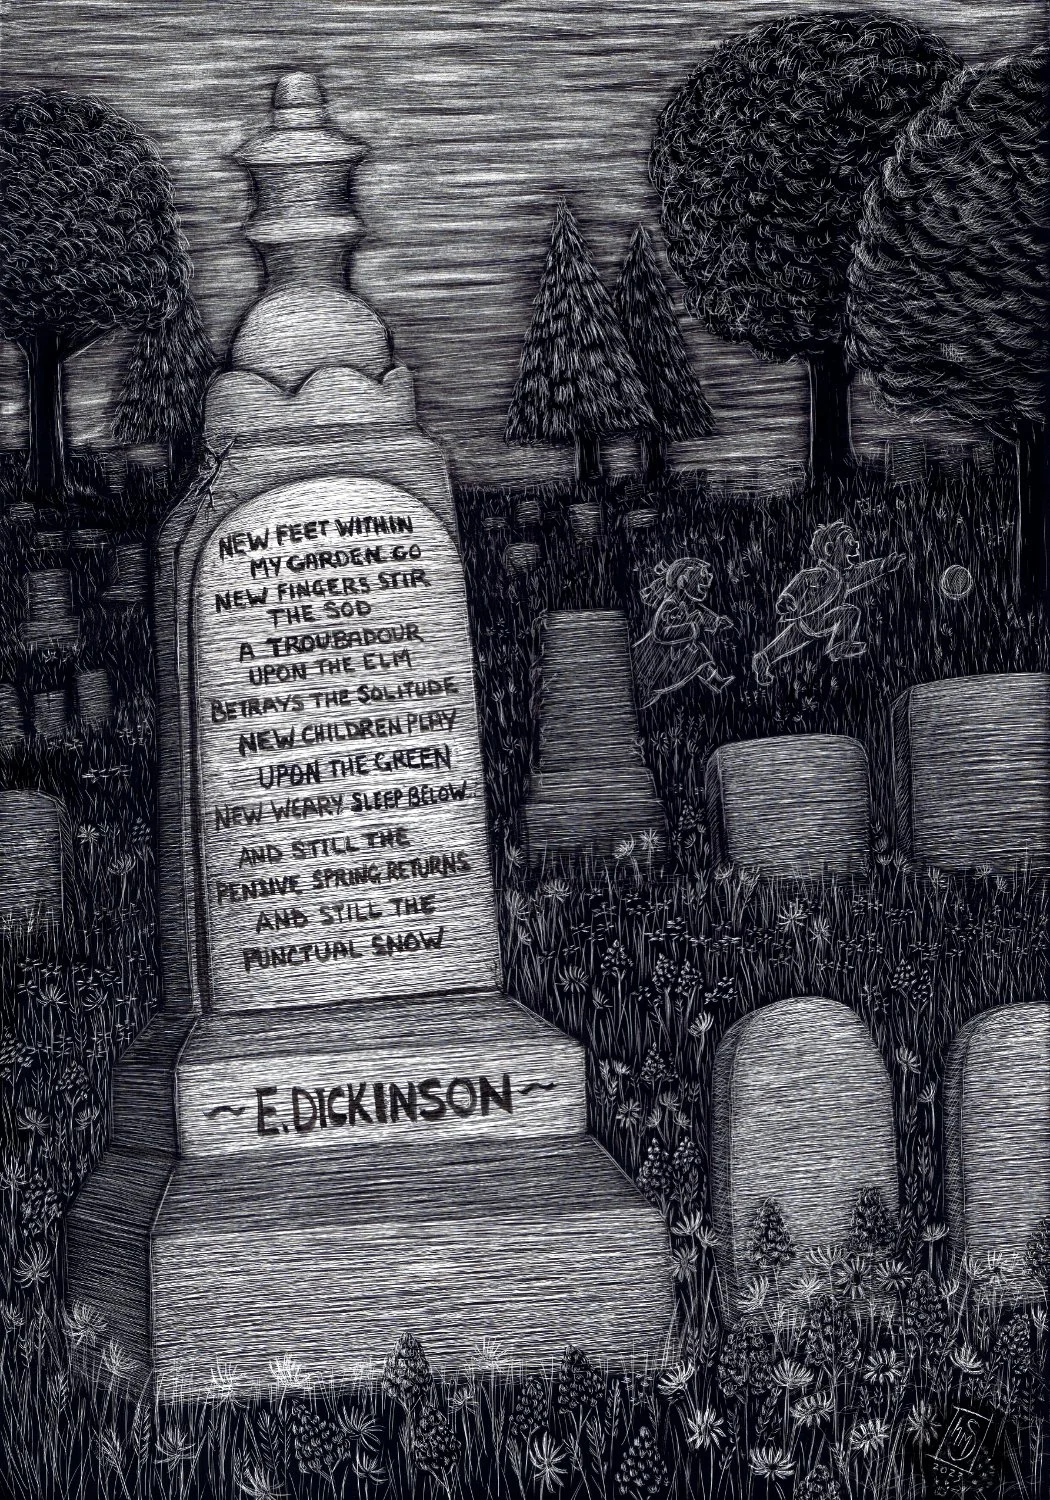 NEW FEET WITHIN
MY GARDEN GO
NEW FINGERS STIR
THE SOD
A TROUBADOUR
UPON THE ELM
BETRAYS THE SOLITUDE
NEW CHILDREN PLAY
UPON THE GREEN
NEW WEARY SLEEP BELOW.
AND STILL THE
PENSIVE SPRING RETURNS
AND STILL THE
PUNCTUAL SNOW
~E.DICKINSON~
2023